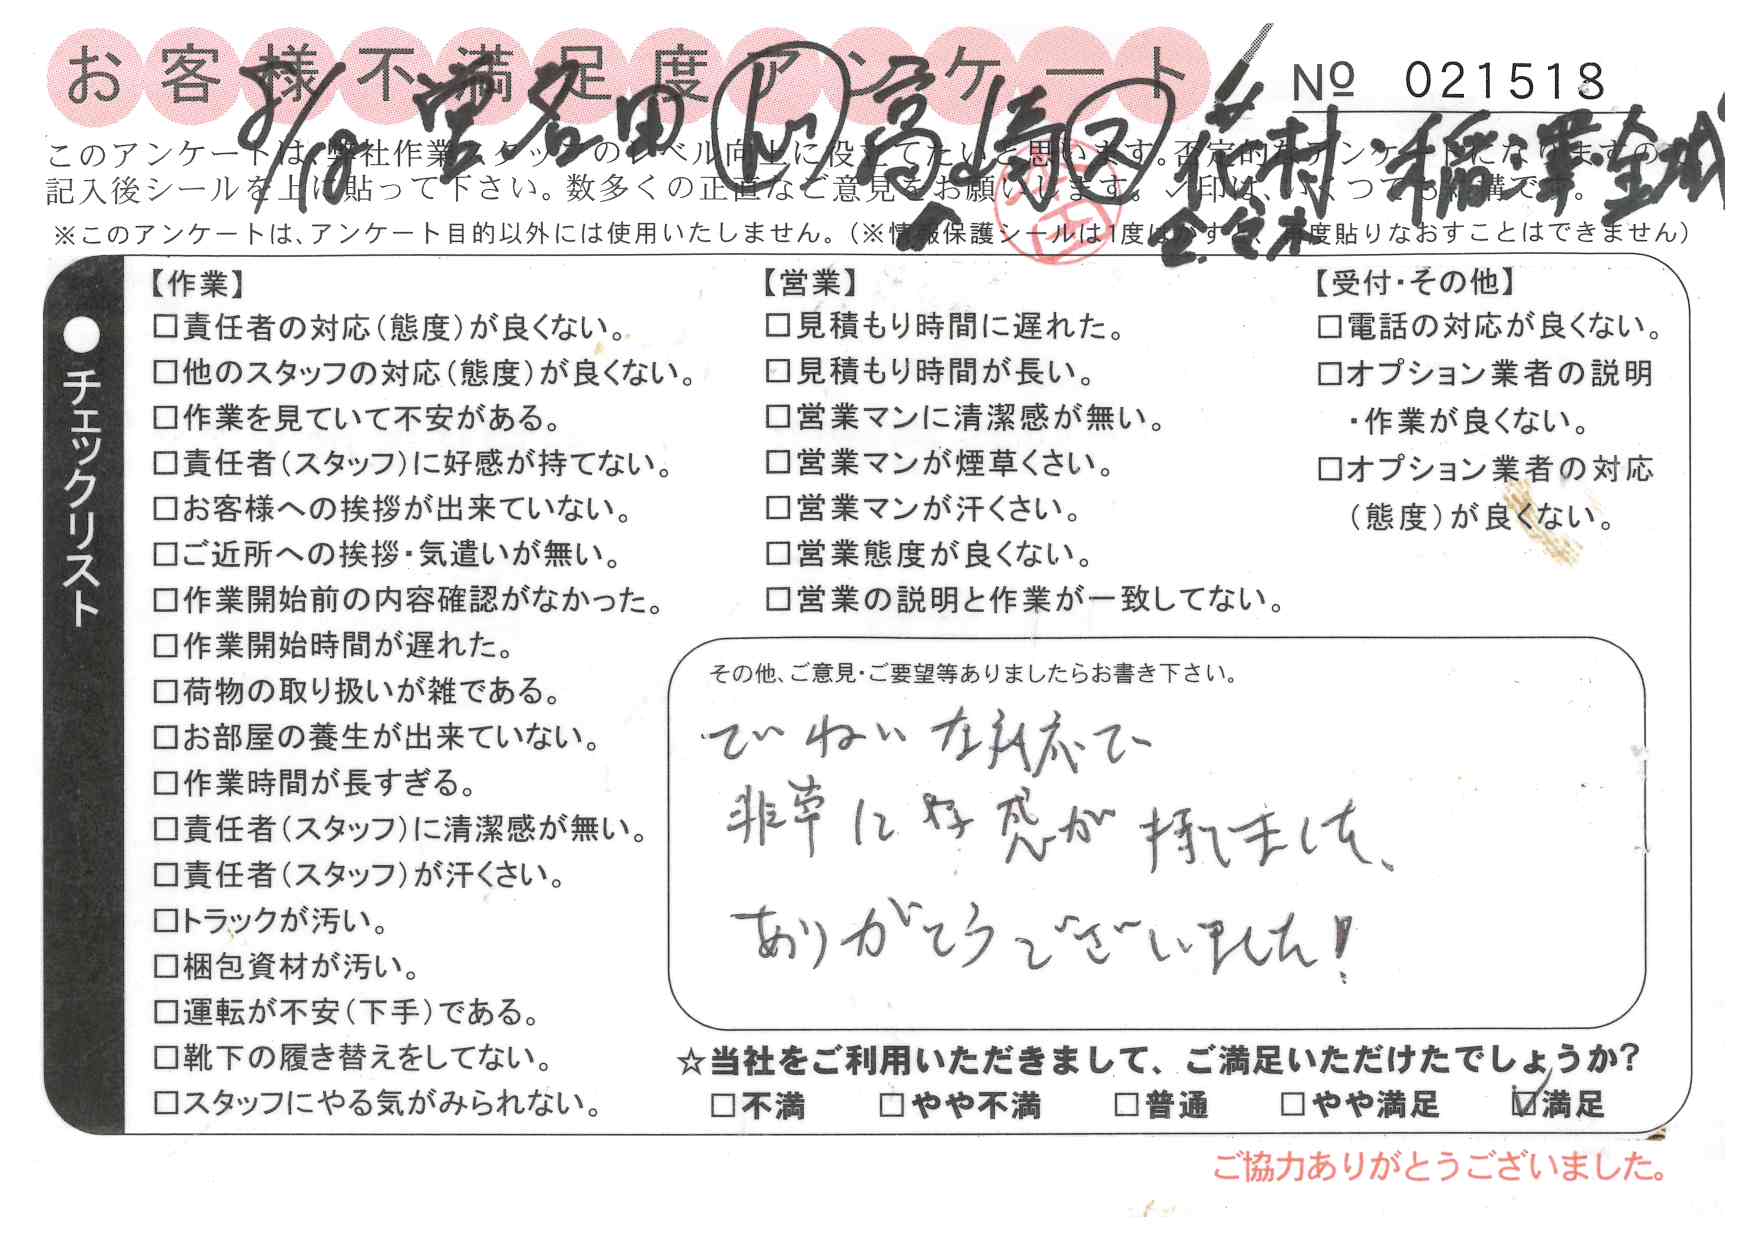 お客様不満足度アンケート
№ 021518
このアンケートは、弊社作業スタッフのレベル向上に役立てたいと思います。否定的なアンケートになりますので
記入後シールを上に貼って下さい。数多くの正直なご意見をお願いします。✓印は、いくつでも結構です。
※このアンケートは、アンケート目的以外には使用いたしません。(※情報保護シールは1度はがすと、再度貼りなおすことはできません)
チェックリスト
【作業】
□責任者の対応(態度)が良くない。
□他のスタッフの対応(態度)が良くない。
□作業を見ていて不安がある。
□責任者(スタッフ)に好感が持てない。
□お客様への挨拶が出来ていない。
□ご近所への挨拶・気遣いが無い。
□作業開始前の内容確認がなかった。
□作業開始時間が遅れた。
□荷物の取り扱いが雑である。
□お部屋の養生が出来ていない。
□作業時間が長すぎる。
□責任者(スタッフ)に清潔感が無い。
□責任者(スタッフ)が汗くさい。
□トラックが汚い。
□梱包資材が汚い。
□運転が不安(下手)である。
□靴下の履き替えをしてない。
□スタッフにやる気がみられない。
【営業】
□見積もり時間に遅れた。
□見積もり時間が長い。
□営業マンに清潔感が無い。
□営業マンが煙草くさい。
□営業マンが汗くさい。
□営業態度が良くない。
□営業の説明と作業が一致してない。
【受付・その他】
□電話の対応が良くない。
□オプション業者の説明
・作業が良くない。
□オプション業者の対応
(態度)が良くない。
その他、ご意見・ご要望等ありましたらお書き下さい。
ていねいな対応で
非常に好感が持てました、
ありがとうございました!
☆当社をご利用いただきまして、ご満足いただけたでしょうか?
□不満 □やや不満 □普通 □やや満足 ☑満足
ご協力ありがとうございました。